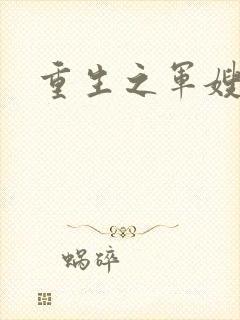 重生之军嫂
蜗碎